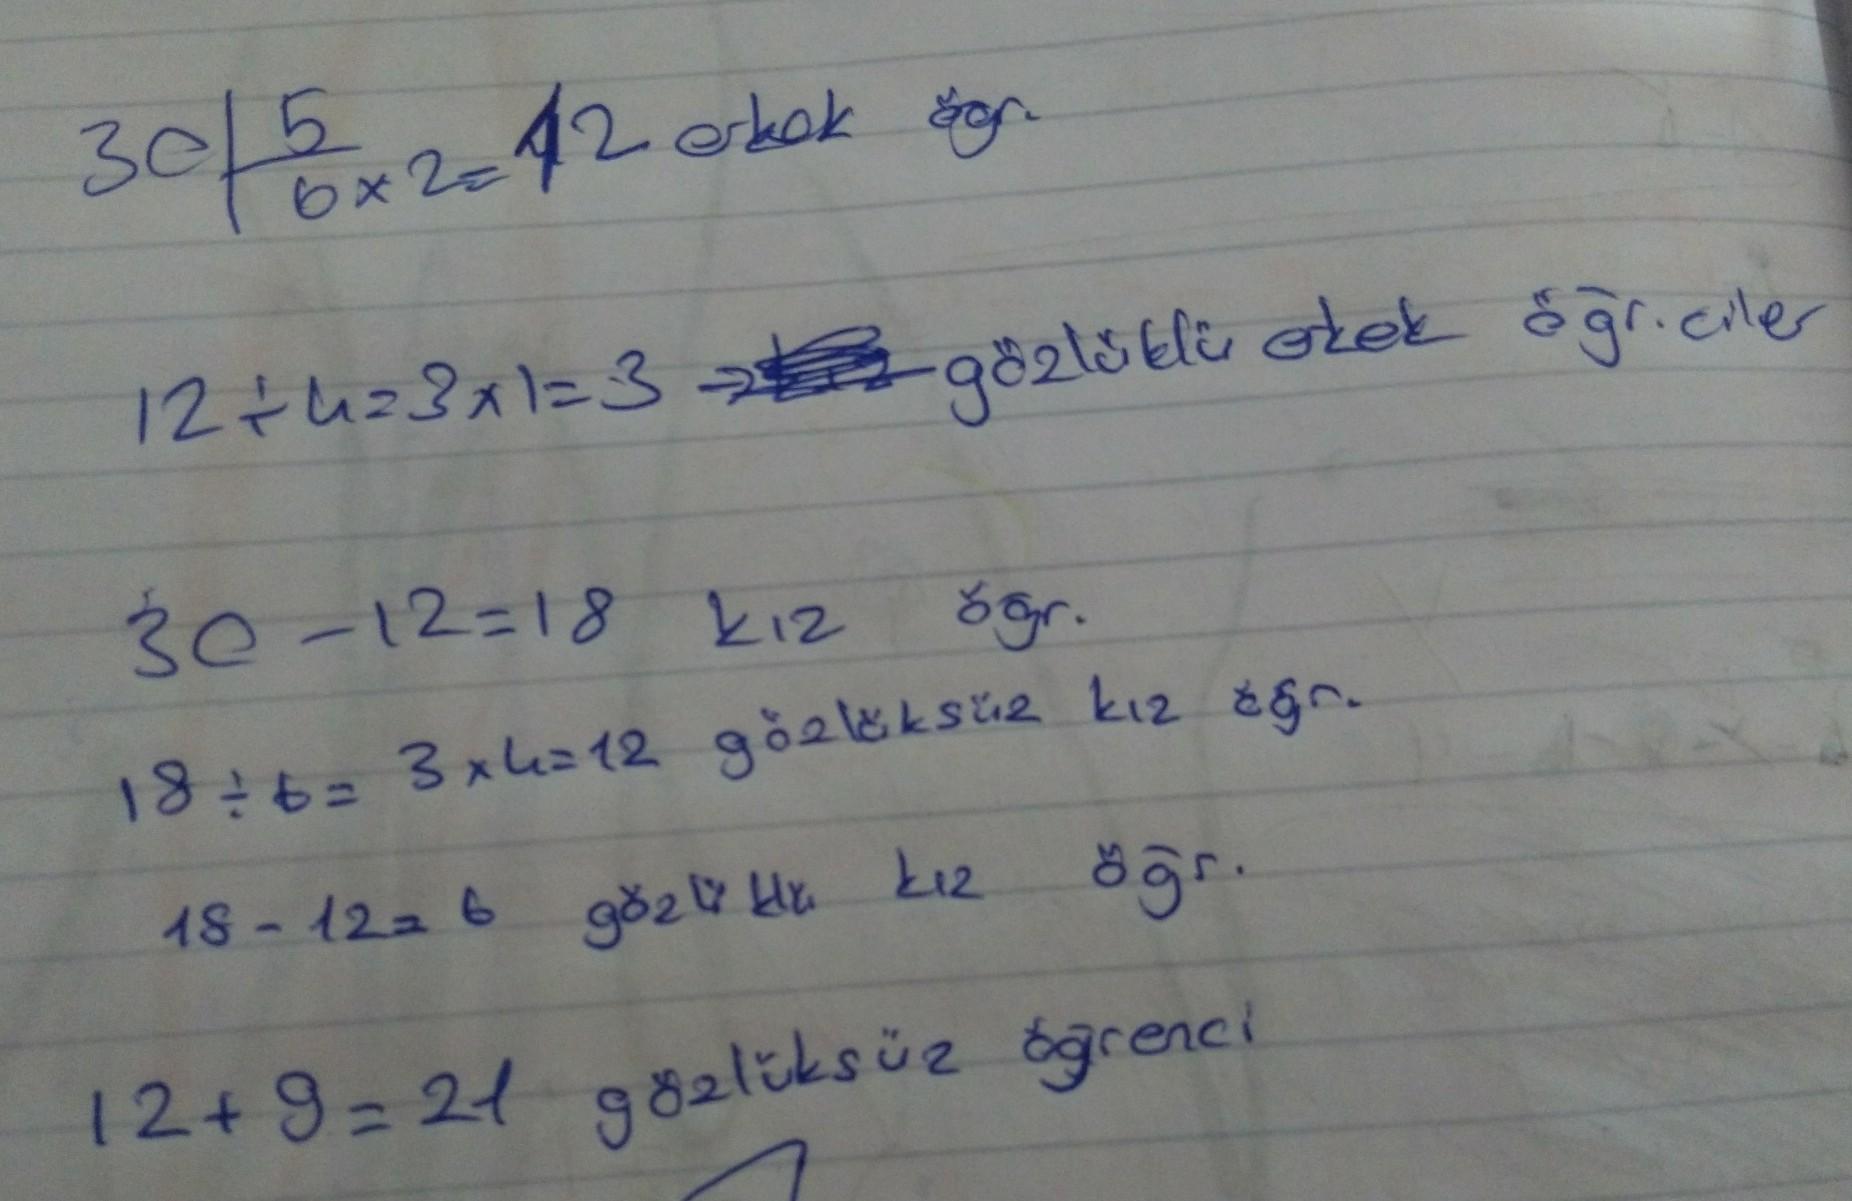 30 | 5
6 x 2 = 12 erkek öğr.
12 ÷ 4 = 3 x 1 = 3 → gözlüklü erkek öğr.ciler
30 - 12 = 18 kız öğr.
18 ÷ 6 = 3 x 4 = 12 gözlüksüz kız öğr.
18 - 12 = 6 gözlüklü kız öğr.
12 + 9 = 21 gözlüksüz öğrenci